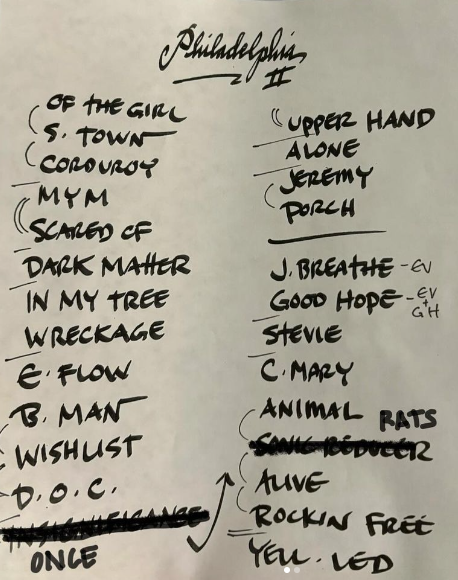 Philadelphia
II
OF THE GIRL
S. TOWN
CORDUROY
MYM
SCARED OF
DARK MATTER
IN MY TREE
WRECKAGE
E. FLOW
B. MAN
WISHLIST
D.O.C.
INSIGNIFICANCE
ONCE
UPPER HAND
ALONE
JEREMY
PORCH
J. BREATHE - EV
GOOD HOPE - EV + GH
STEVIE
C. MARY
ANIMAL RATS
SONIC REDUCER
ALIVE
ROCKIN FREE
YELL. LED